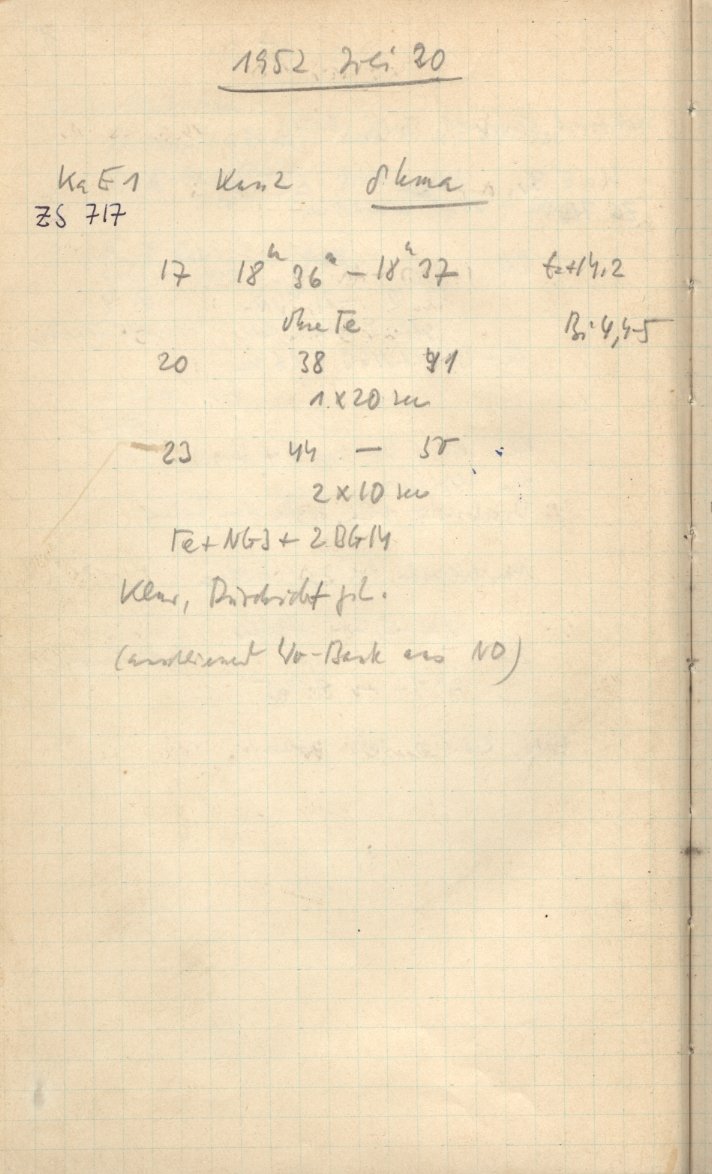 1952 Juli 20
KaE1 Kass2 δ Uma
ZS 717
17 18ʰ 36ᵐ – 18ʰ 37 t=+14,2
ohne Te Bi 4,4-5
20 38 41
1 x 20 sec
23 44 — 50
2 x 10 sec
Te + NG3 + 2BG14
Klar, Durchsicht
( -Bank aus NO)